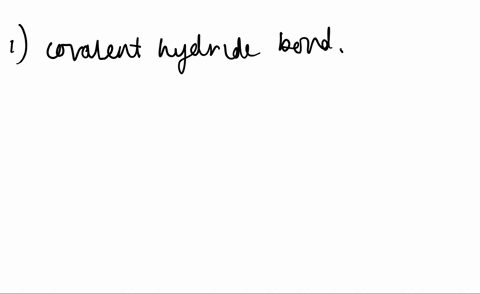 1) covalent hydride bond.